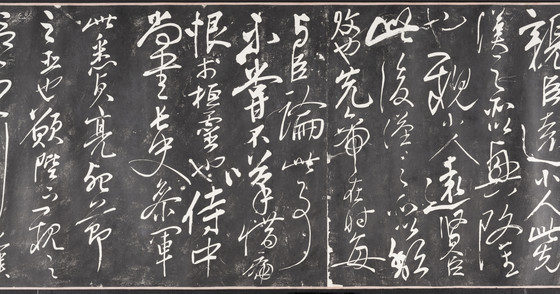 親臣遠小人此先
漢之所以興隆
也親小人遠賢臣
此後漢之所以傾
頹也先帝在時每
與臣論此事
未嘗不歎惜痛
恨於桓靈也侍中
尚書長史參軍
此悉貞亮死節
之臣也願陛下親之